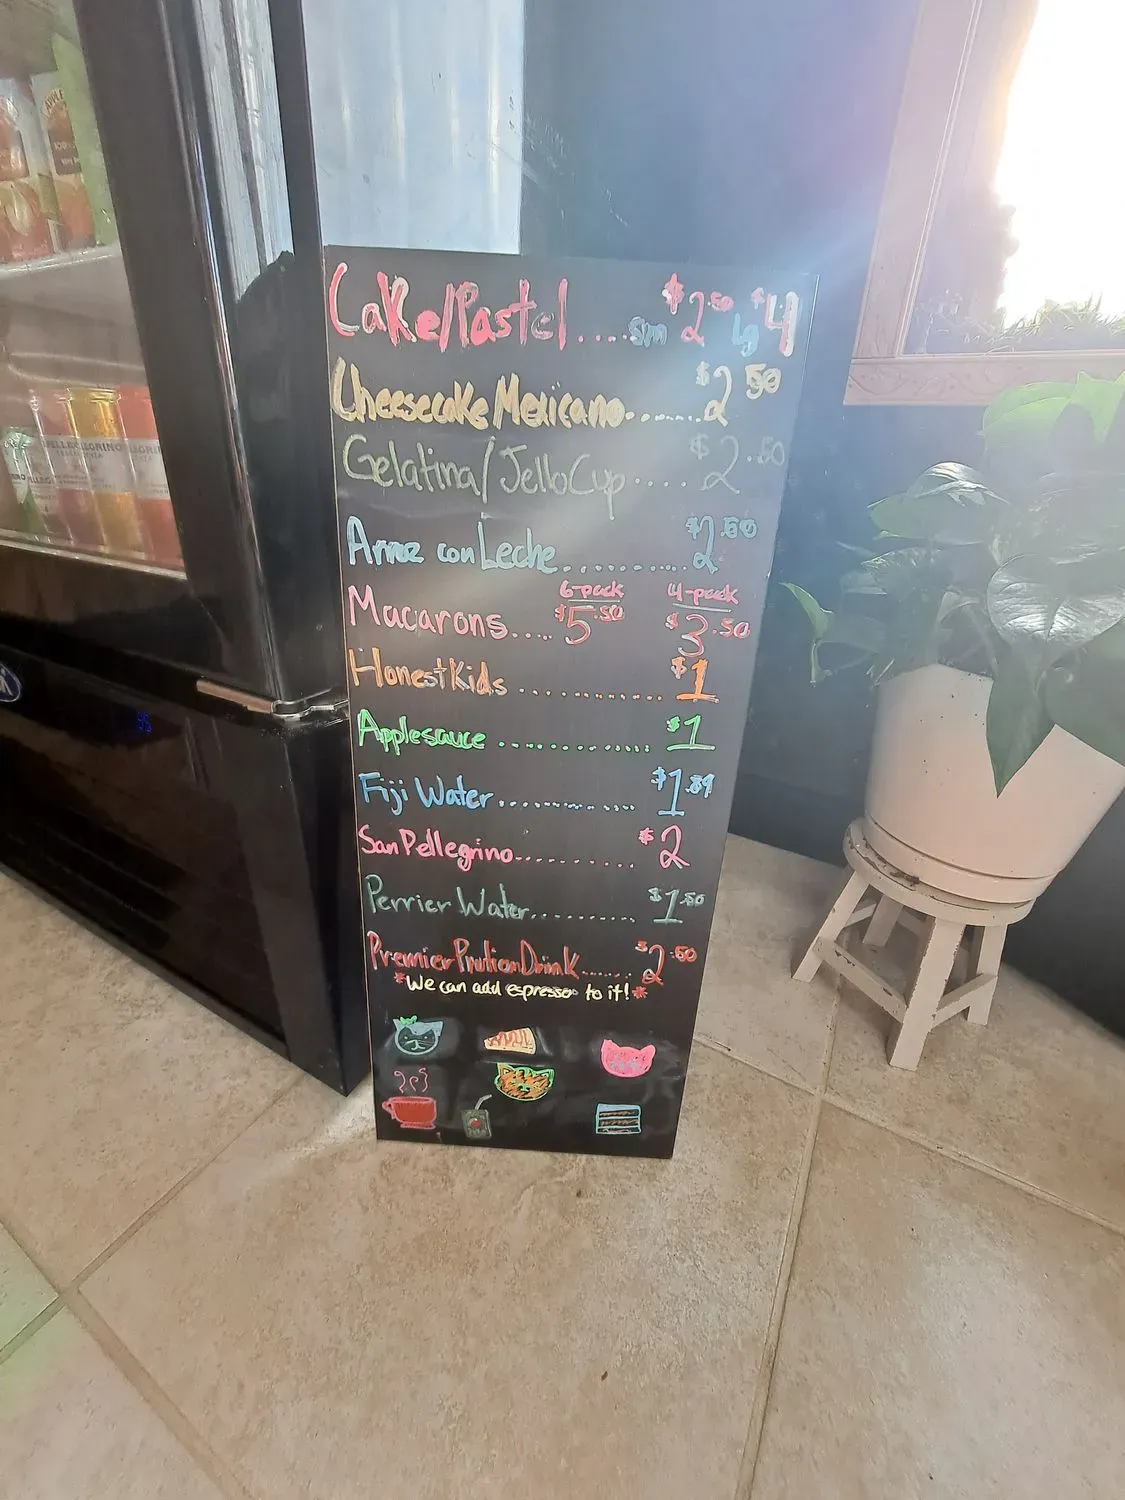 Cake/Pastel....sm $2.50 lg $4
Cheesecake Mexicano.......$2.50
Gelatina/Jello Cup....$2.50
Arroz con Leche...........$2.50
6-pack 4-pack
Macarons....$5.50 $3.50
Honest Kids.............$1
Applesauce.............$1
Fiji Water.............$1.89
San Pellegrino..........$2
Perrier Water..........$1.50
Premier Protien Drink......$2.50
*We can add espresso to it!*
PELLEGRINO